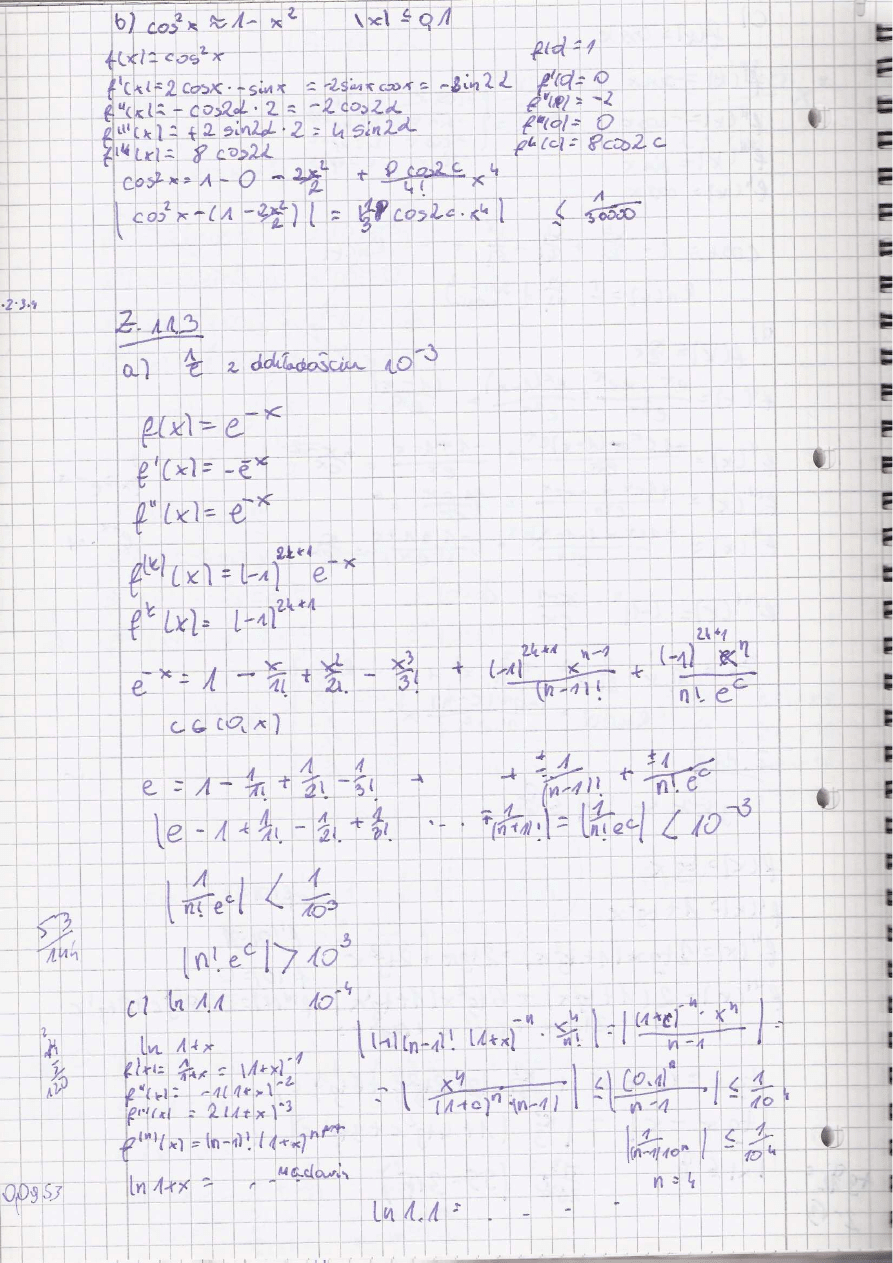 b) cos²x ≈ 1 - x² |x| ≤ 0,1
f(x) = cos²x f(0) = 1
f'(x) = 2cosx · -sinx = -2sinx cosx = -sin2x f'(0) = 0
f''(x) = -cos2x · 2 = -2cos2x f''(0) = -2
f'''(x) = +2sin2x · 2 = 4sin2x f'''(0) = 0
f⁽⁴⁾(x) = 8cos2x f⁴(c) = 8cos2c
cos²x = 1 - 0 - 2x²/2 + 8cos2c/4! x⁴
|cos²x - (1 - 2x²/2)| = |1/3 cos2c · x⁴| ≤ 1/30000
·2·3·4
Z. 11.3
a) 1/e z dokładnością 10⁻³
f(x) = e^-x
f'(x) = -e^-x
f''(x) = e^-x
f^(k)(x) = (-1)^2k+1 e^-x
f^k(x) = (-1)^2k+1
e^-x = 1 - x/1! + x²/2! - x³/3! + (-1)^2k+1 x^n-1/(n-1)! + (-1)^2k+1 x^n/n! e^c
c ∈ (0, x)
e = 1 - 1/1! + 1/2! - 1/3! + + ±1/(n-1)! + ±1/n! e^c
|e - 1 + 1/1! - 1/2! + 1/3! ... ∓1/(n+1)!| = |1/n! e^c| < 10⁻³
|1/n! e^c| < 1/10³
53/144
|n! e^c| > 10³
c) ln 1.1 10⁻⁴
ln 1+x
f'(x) = 1/1+x = (1+x)⁻¹
f''(x) = -1(1+x)⁻²
f'''(x) = 2(1+x)⁻³
f^(n)(x) = (n-1)! (1+x)^n
ln 1+x = . . -
|(-1)(n-1)! (1+x)^-n · x^n/n!| = |(1+c)^-n · x^n/n-1| =
= |x^n/(1+c)^n · (n-1)| ≤ |(0.1)^n/n-1| ≤ 1/10⁴
|1/(n-1)10^n| ≤ 1/10⁴
n = 4
0,0953
ln 1.1 = . - - -